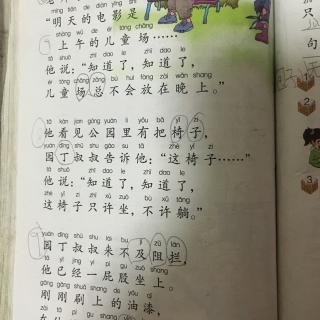 míng tiān de diàn yǐng shì
“明天的电影是
shàng wǔ de ér tóng chǎng
上午的儿童场……
tā shuō zhī dao le zhī dao le
他说：“知道了，知道了，
ér tóng chǎng zǒng bú huì fàng zài wǎn shang
儿童场总不会放在晚上。”
tā kàn jiàn gōng yuán li yǒu bǎ yǐ zi
他看见公园里有把椅子，
yuán dīng shū shu gào su tā zhè yǐ zi
园丁叔叔告诉他：“这椅子……”
tā shuō zhī dao le zhī dao le
他说：“知道了，知道了，
zhè yǐ zi zhǐ xǔ zuò bù xǔ tǎng
这椅子只许坐，不许躺。”
yuán dīng shū shu lái bu jí zǔ lán
园丁叔叔来不及阻拦，
tā yǐ jīng yí pì gu zuò
他已经一屁股坐上
gāng gāng shuā shang de yóu qī
刚刚刷上的油漆，
只
句
1
2
3